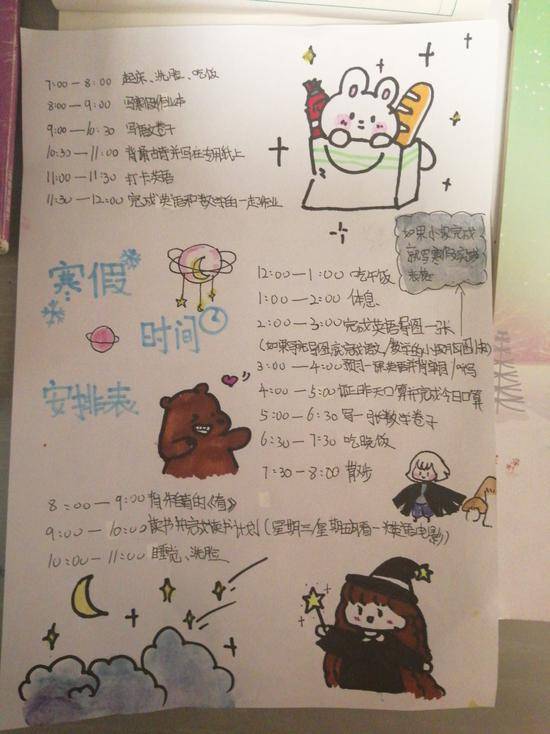 7:00—8:00 起床、洗脸、吃饭
8:00—9:00 写寒假作业本
9:00—10:30 写语文卷子
10:30—11:00 背古诗并写在专用纸上
11:00—11:30 打卡英语
11:30—12:00 完成英语和数学的一起作业
寒假
时间
安排表
如果小报完成,
就写寒假实践
表格
12:00—1:00 吃午饭
1:00—2:00 休息
2:00—3:00 完成英语导图一张
(如果导图完成语文/数学的小报
3:00—4:00 预习一课英语并背单词/听写
4:00—5:00 订正昨天口算并完成今日口算
5:00—6:30 写一张数学卷子
6:30—7:30 吃晚饭
7:30—8:00 散步
8:00—9:00 背
9:00—10:00 读书并完成读书计划(星期三/星期五看一次英语电影)
10:00—11:00 睡觉、洗脸